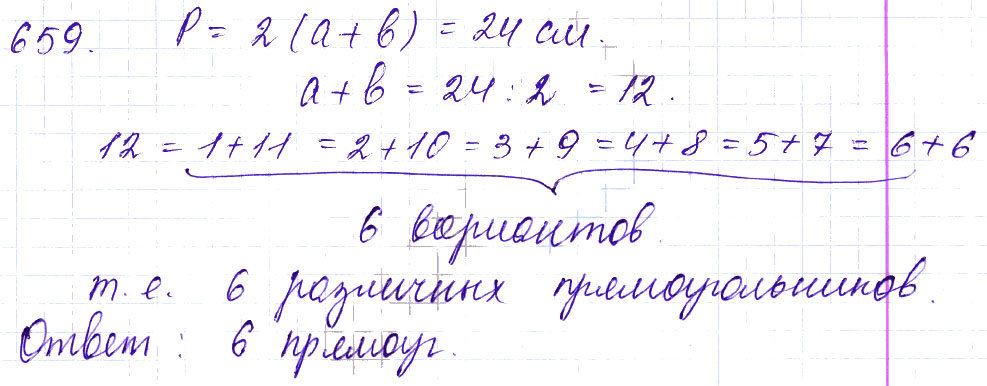 659. P = 2 (a + b) = 24 см.
a + b = 24 : 2 = 12.
12 = 1+11 = 2+10 = 3+9 = 4+8 = 5+7 = 6+6
6 вариантов.
т.е. 6 различных прямоугольников.
Ответ: 6 прямоуг.